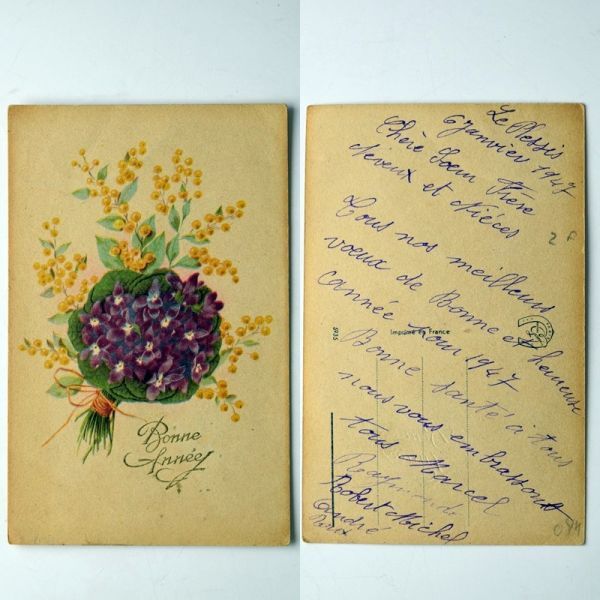 Bonne
Année
Le Plessis
6 janvier 1947
Chère Sœur Frère
neveux et Nièces
Tous nos meilleurs
vœux de Bonne et heureuse
année pour 1947
Bonne santé à tous
nous vous embrassons
tous Marcel
Raymonde
Robert Michel
André
2 F
Imprimé en France
5935